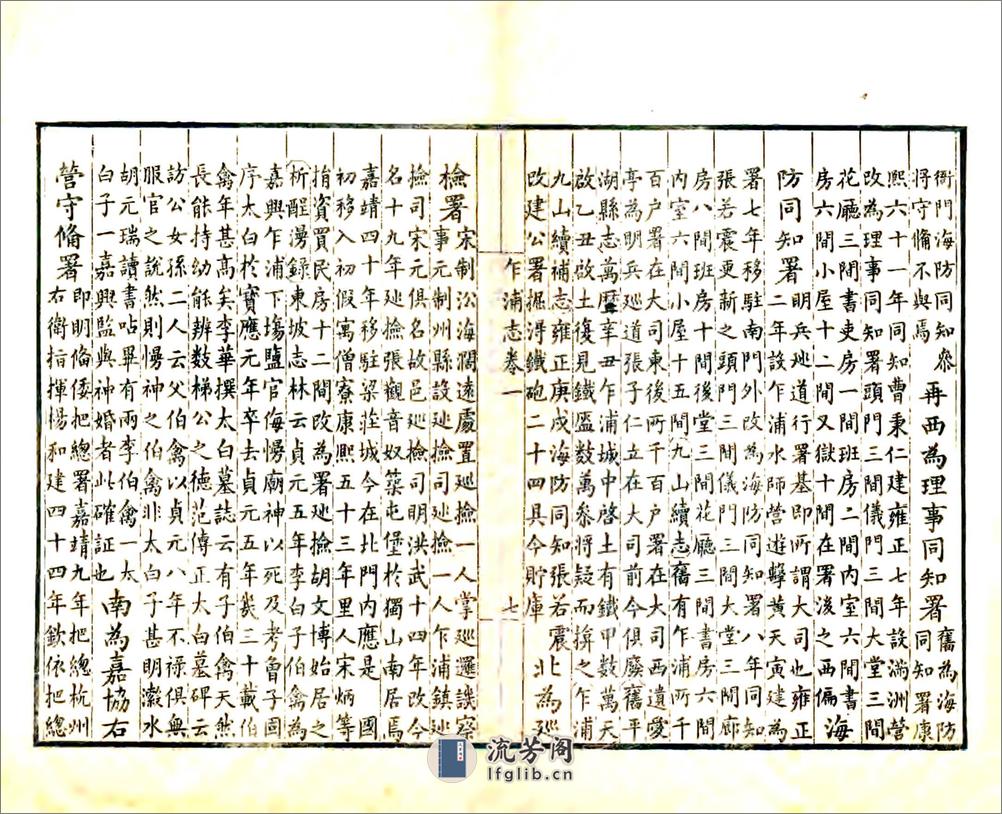 衙門海防同知叅
將守備不與焉
再西為理事同知署
舊為海防
同知署康
熙六十一年同知曹秉仁建雍正七年設滿洲營
改為理事同知署頭門三間儀門三間大堂三間
花廳三間書吏房一間班房二間内室六間書
房六間小屋十二間又獄十間在署後之西偏
海
防同知署
明兵廵道行署基即所謂大司也雍正
二年設乍浦水師營遊擊黄天寅建為
署七年移駐南門外改為海防同知署八年同知
張若震更新之頭門三間儀門三間大堂三間廊
房八間班房十間後堂三間花廳三間書房六間
内室六間小屋十五間九山續志舊有乍浦所千
百户署在大司東後所千百户署在大司西遺愛
亭為明兵廵道張子仁立在大司前今俱廢舊平
湖縣志萬曆辛丑乍浦城中啓土有鐵甲數萬天
啟乙丑啟土復見鐵數萬疑而揜之乍浦
九山續補志雍正庚戌海防同知張若震
改建公署掘得鐵砲二十四具今貯庫
北為廵
乍浦志卷一
七
檢署
宋制沿海濶遠處置廵檢一人掌廵邏譏察
事元制州縣設廵檢司廵檢一人乍浦鎮廵
檢司宋元俱名故邑廵檢司明洪武十四年改今
名十九年廵檢張觀音奴築屯堡於獨山南居焉
嘉靖四十年移駐梁莊城今在北門内應是國
初移入初假寓僧寮康熙五十三年里人宋炳等
捐資買民房十二間改為署廵檢胡文博始居之
析酲漫録東坡志林云貞元五年李白子伯禽為
嘉興乍浦下塲鹽官侮慢廟神以死及考曾子固
序太白於寳應元年卒去貞元五年幾三十載伯
禽年甚高矣李華撰太白墓誌云有子伯禽天然
長能持幼能辨数梯公之德范傳正太白墓碑云
訪公女孫二人云父伯禽以貞元八年不禄俱無
服官之説然則慢神之伯禽非太白子甚明瀫水
胡元瑞讀書呫畢有兩李伯禽一太
白子一嘉興監與神婚者此確証也
南為嘉協右
營守備署
即明備倭把總署嘉靖九年把總杭州
右衛指揮楊和建四十四年欽依把總
流芳阁
lfglib.cn